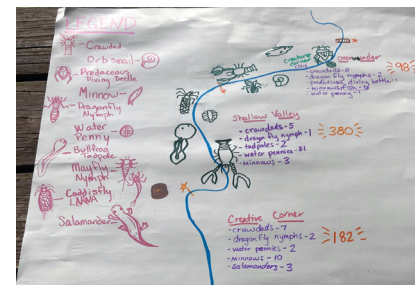 LEGEND
Crawdad
Orb Snail
Predaceous
Diving Beetle
Minnow
Dragonfly
Nymph
Water
Penny
Bullfrog
Tadpole
Mayfly
Nymph
Caddisfly
LARVA
Salamander
Creature
Corner
98
- dragon fly nymphs - 2
- water penny - 1
Shallow Valley
- crawdads - 5
- dragon fly nymph - 1
- tadpoles - 2
- water pennies - 31
- minnows - 3
380
Creative Corner
- crawdads - 7
- dragonfly nymphs - 2
- water pennies - 2
- minnows - 10
- salamanders - 3
182